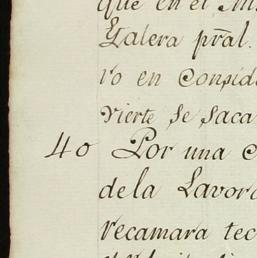 que en el
Galera pral.
ro en Consid
vierte se saca
40 Por una c
de la Lavor
recamara tec